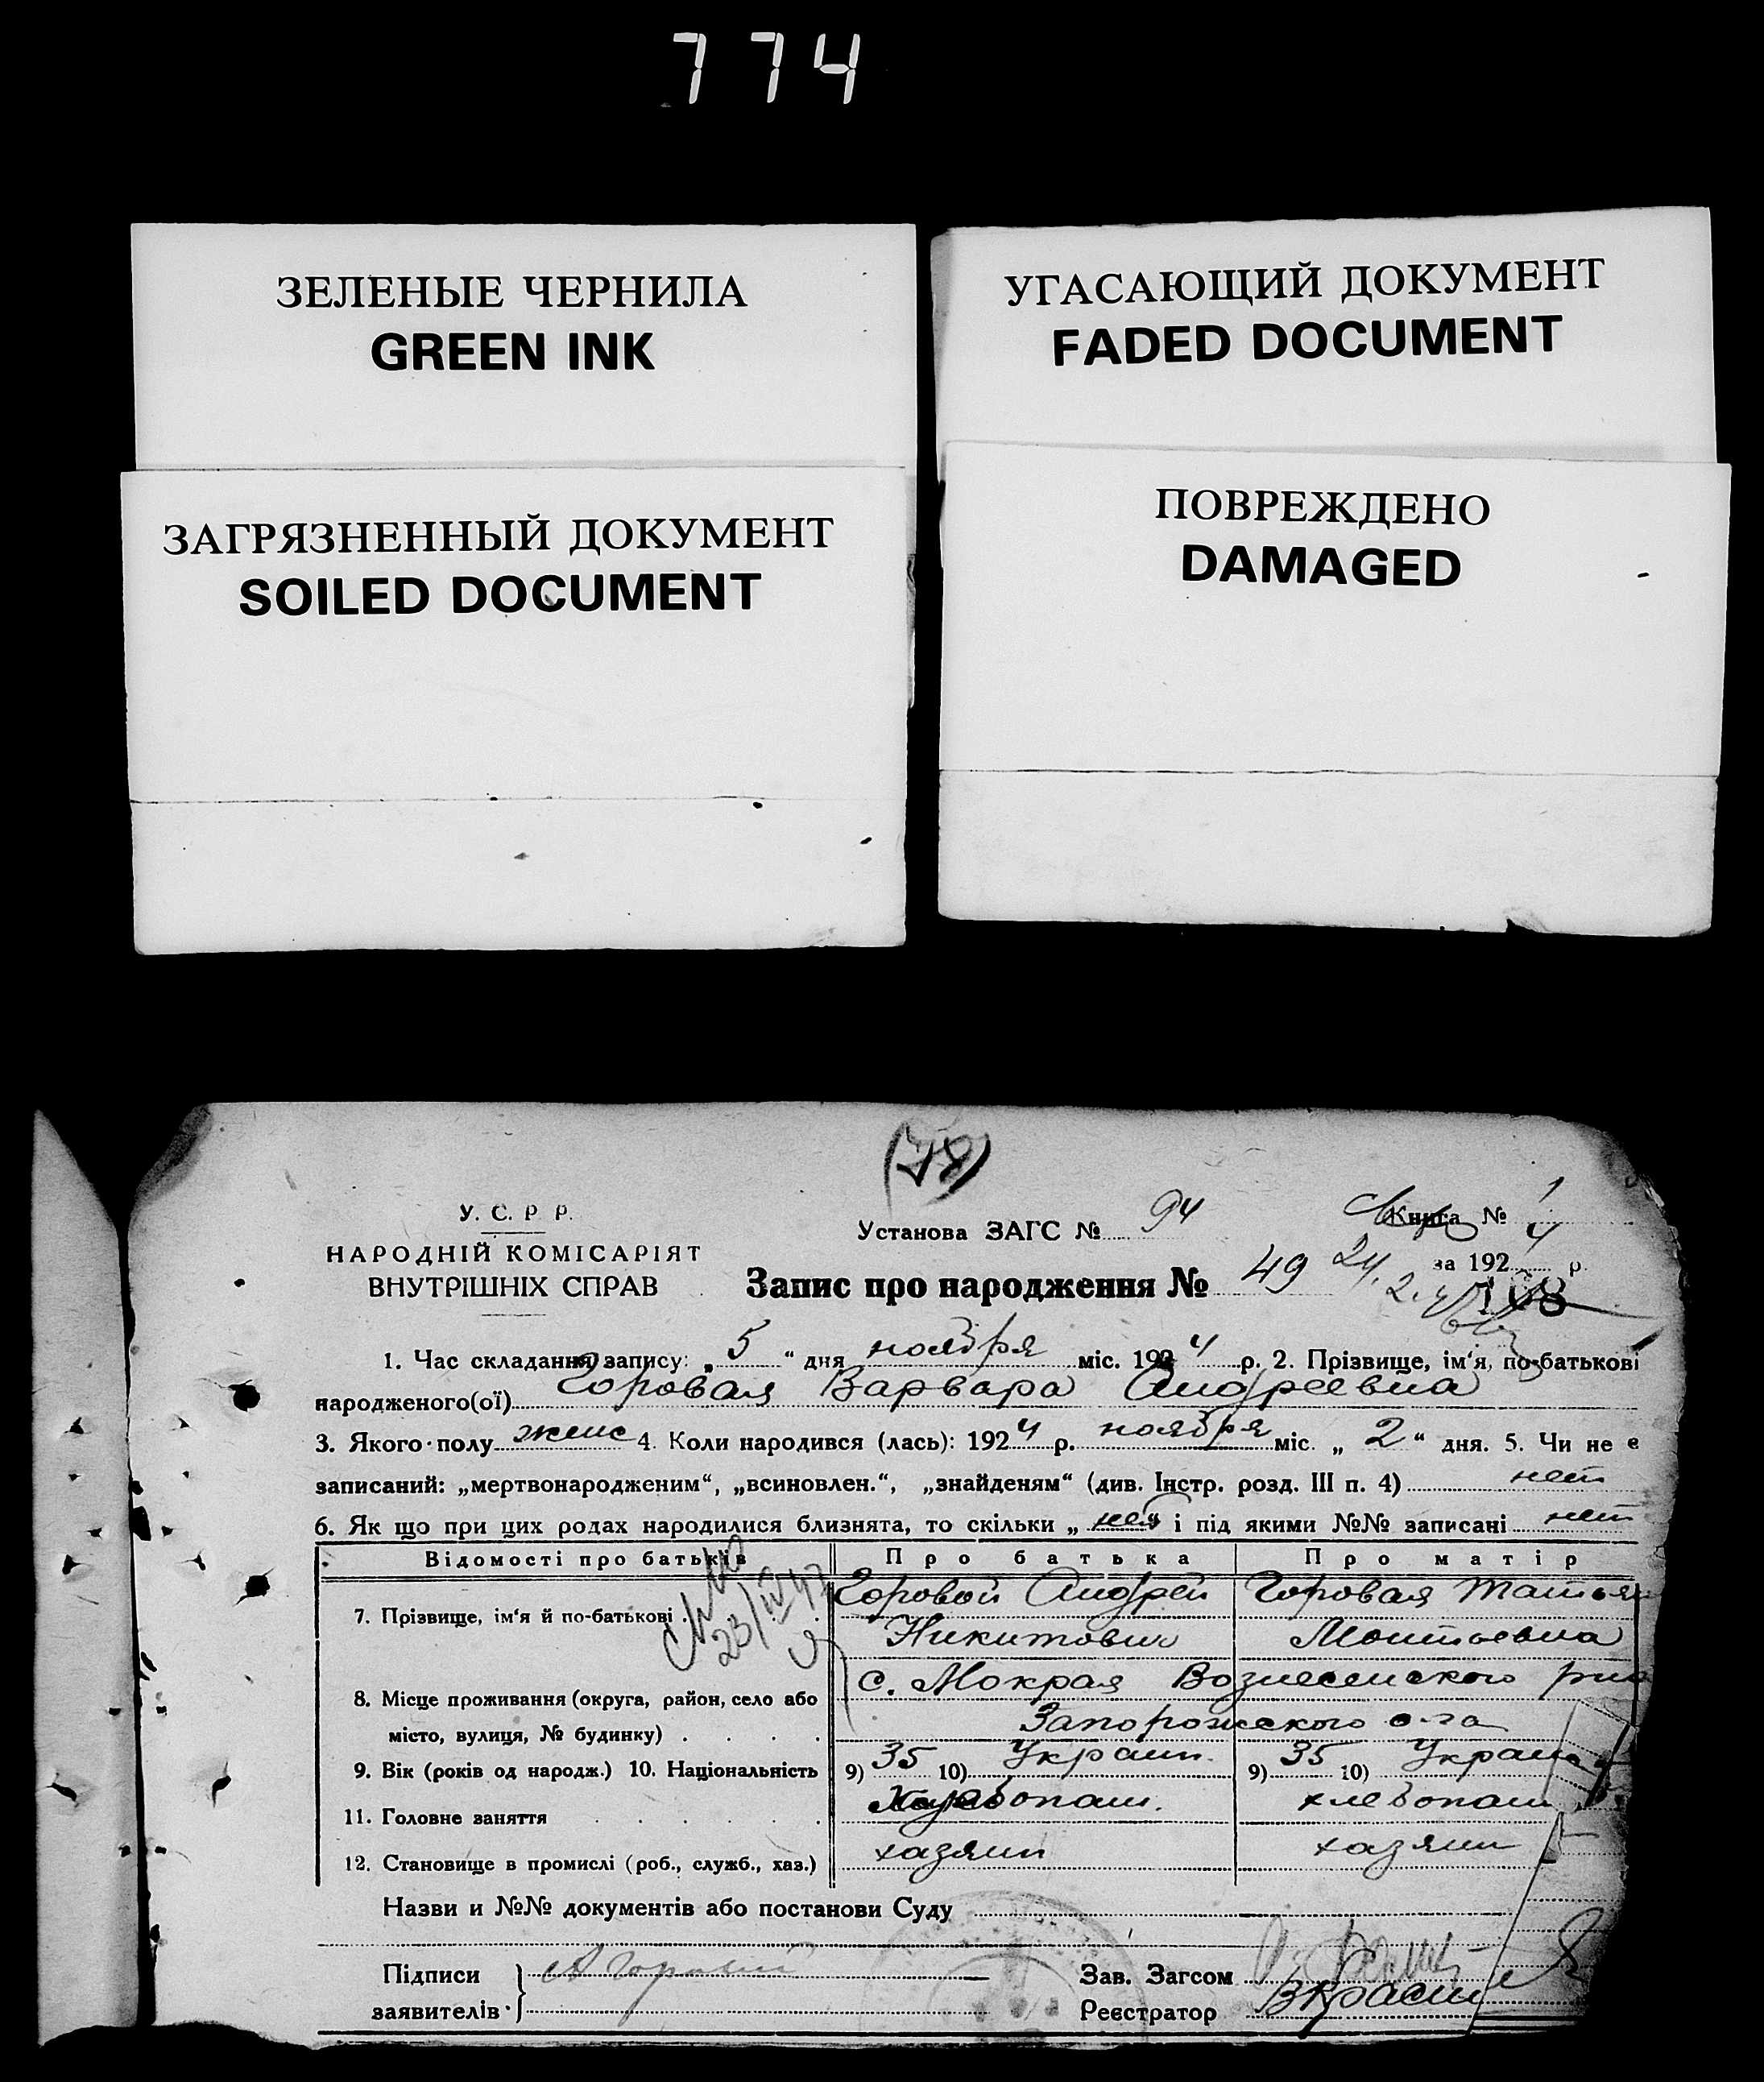 774
ЗЕЛЕНЫЕ ЧЕРНИЛА
GREEN INK
УГАСАЮЩИЙ ДОКУМЕНТ
FADED DOCUMENT
ЗАГРЯЗНЕННЫЙ ДОКУМЕНТ
SOILED DOCUMENT
ПОВРЕЖДЕНО
DAMAGED
У. С. Р. Р.
НАРОДНІЙ КОМІСАРІЯТ
ВНУТРІШНІХ СПРАВ
Установа ЗАГС № 94
Книга № 1
за 192 4 р.
Запис про народження № 49
1. Час складання запису: „ 5 “ дня ноября міс. 192 4 р. 2. Прізвище, ім'я, по-батькові
народженого(ої) Горовая Варвара Андреевна
3. Якого полу женс 4. Коли народився (лась): 192 4 р. ноября міс. „ 2 “ дня. 5. Чи не є
записаний: „мертвонародженим“, „всиновлен.“, „знайденям“ (див. Інстр. розд. III п. 4) нет
6. Як що при цих родах народилися близнята, то скільки „ нет “ і під якими №№ записані нет
Відомості про батьків Про батька Про матір
7. Прізвище, ім'я й по-батькові
Горовой Андрей Никитович
Горовая Татья
23/IV 47
8. Місце проживання (округа, район, село або
місто, вулиця, № будинку)
с. Мокрая Вознесенского
Запорожского
9. Вік (років од народж.) 10. Національність 9) 35 10) Украин. 9) 35 10) Украин
11. Головне заняття хлебопаш
12. Становище в промислі (роб., служб., хаз.) хазяин хазяин
Назви и №№ документів або постанови Суду
Підписи
заявителів
А Горовий
Зав. Загсом
Реєстратор